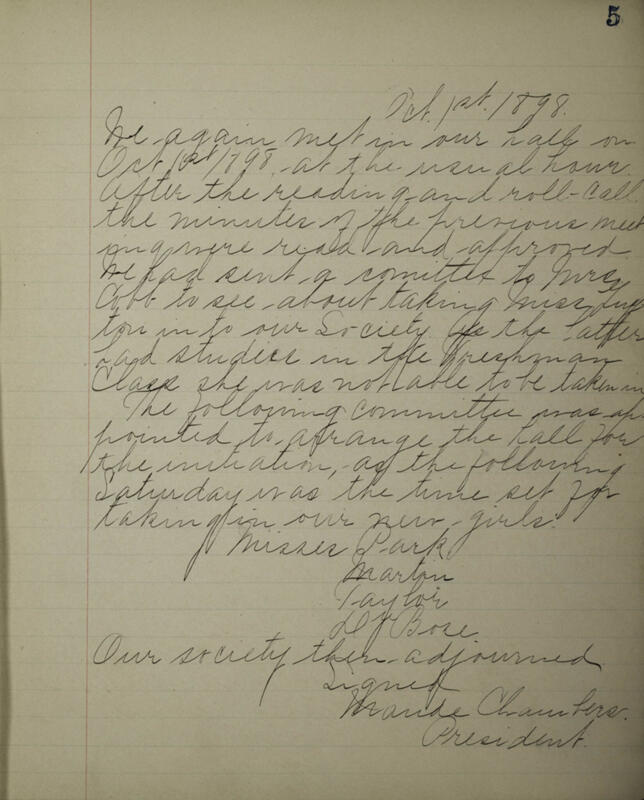 5
Oct. 1st. 1898.
We again met in our hall on
Oct 1st 1898. at the usual hour.
After the reading and roll-call
the minutes of the previous meet
ing were read and approved.
We had sent a comittee to Mrs.
Cobb to see about taking Miss
ton in to our Society. As the latter
had studies in the Freshman
Class she was not able to be taken in
The following committee was ap
pointed to arrange the hall for
the initiation, as the following
Saturday was the time set for
taking in our new girls.
Misses Park
Martin
Taylor
Du Bose.
Our society then adjourned
Signed
Maude Chambers.
President.